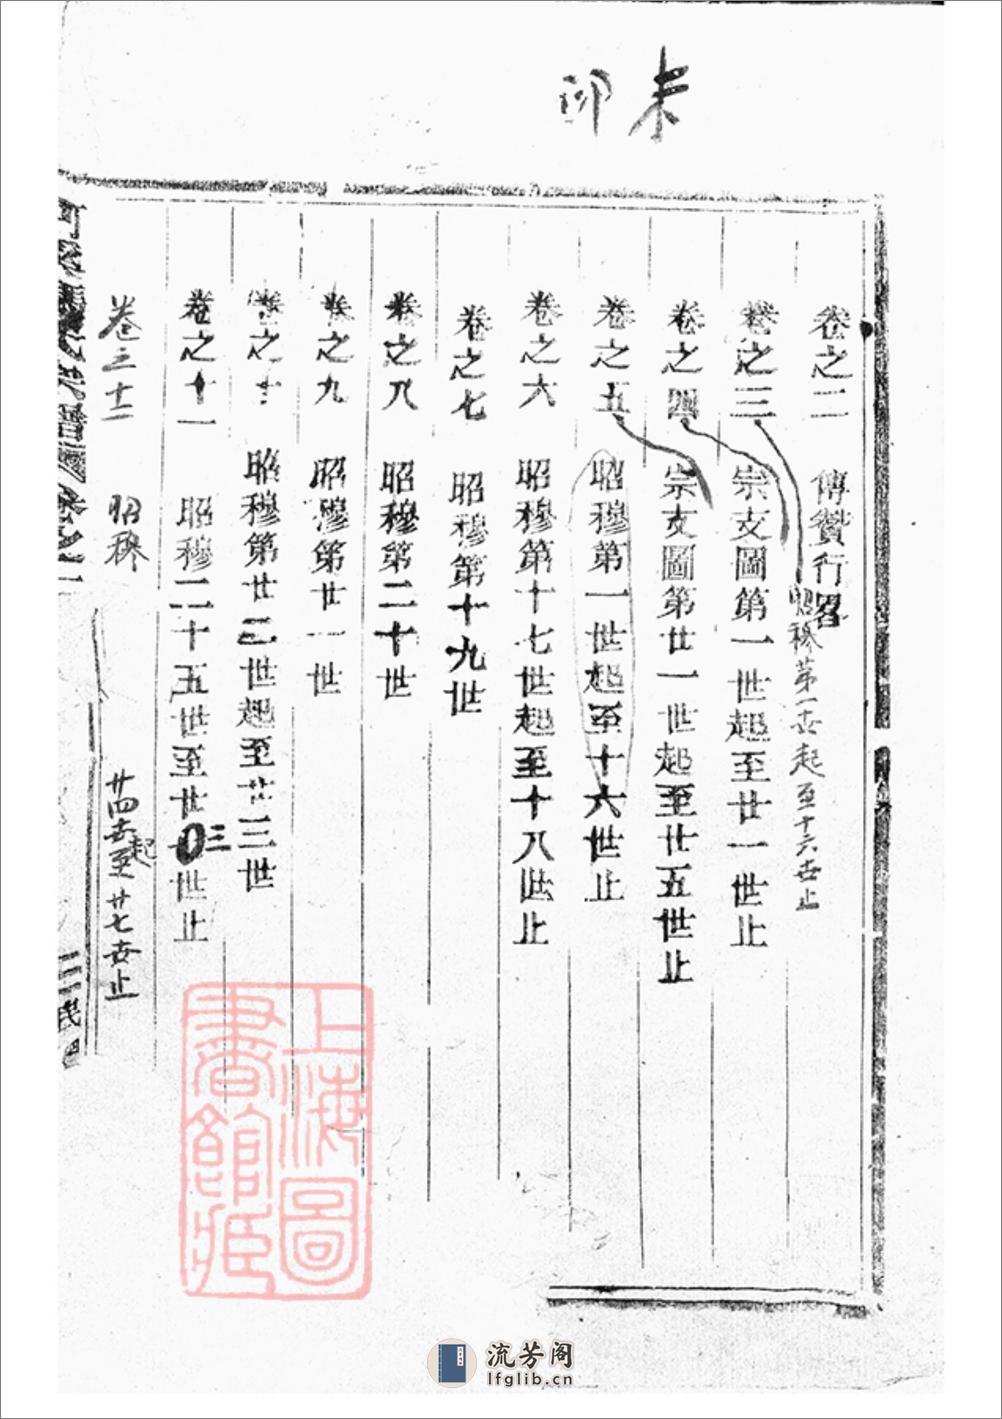 未印
卷之二 傳贊行畧
昭穆第一世起至十六世止
卷之三 宗支圖第一世起至廿一世止
卷之四 宗支圖第廿一世起至廿五世止
卷之五 昭穆第一世起至十六世止
卷之六 昭穆第十七世起至十八世止
卷之七 昭穆第十九世
卷之八 昭穆第二十世
卷之九 昭穆第廿一世
卷之十 昭穆第廿二世起至廿三世
卷之十一 昭穆二十五世至廿世止
三
卷之十二 昭穆 廿四世起至廿七世止
上海圖書館藏
流芳阁
lfglib.cn